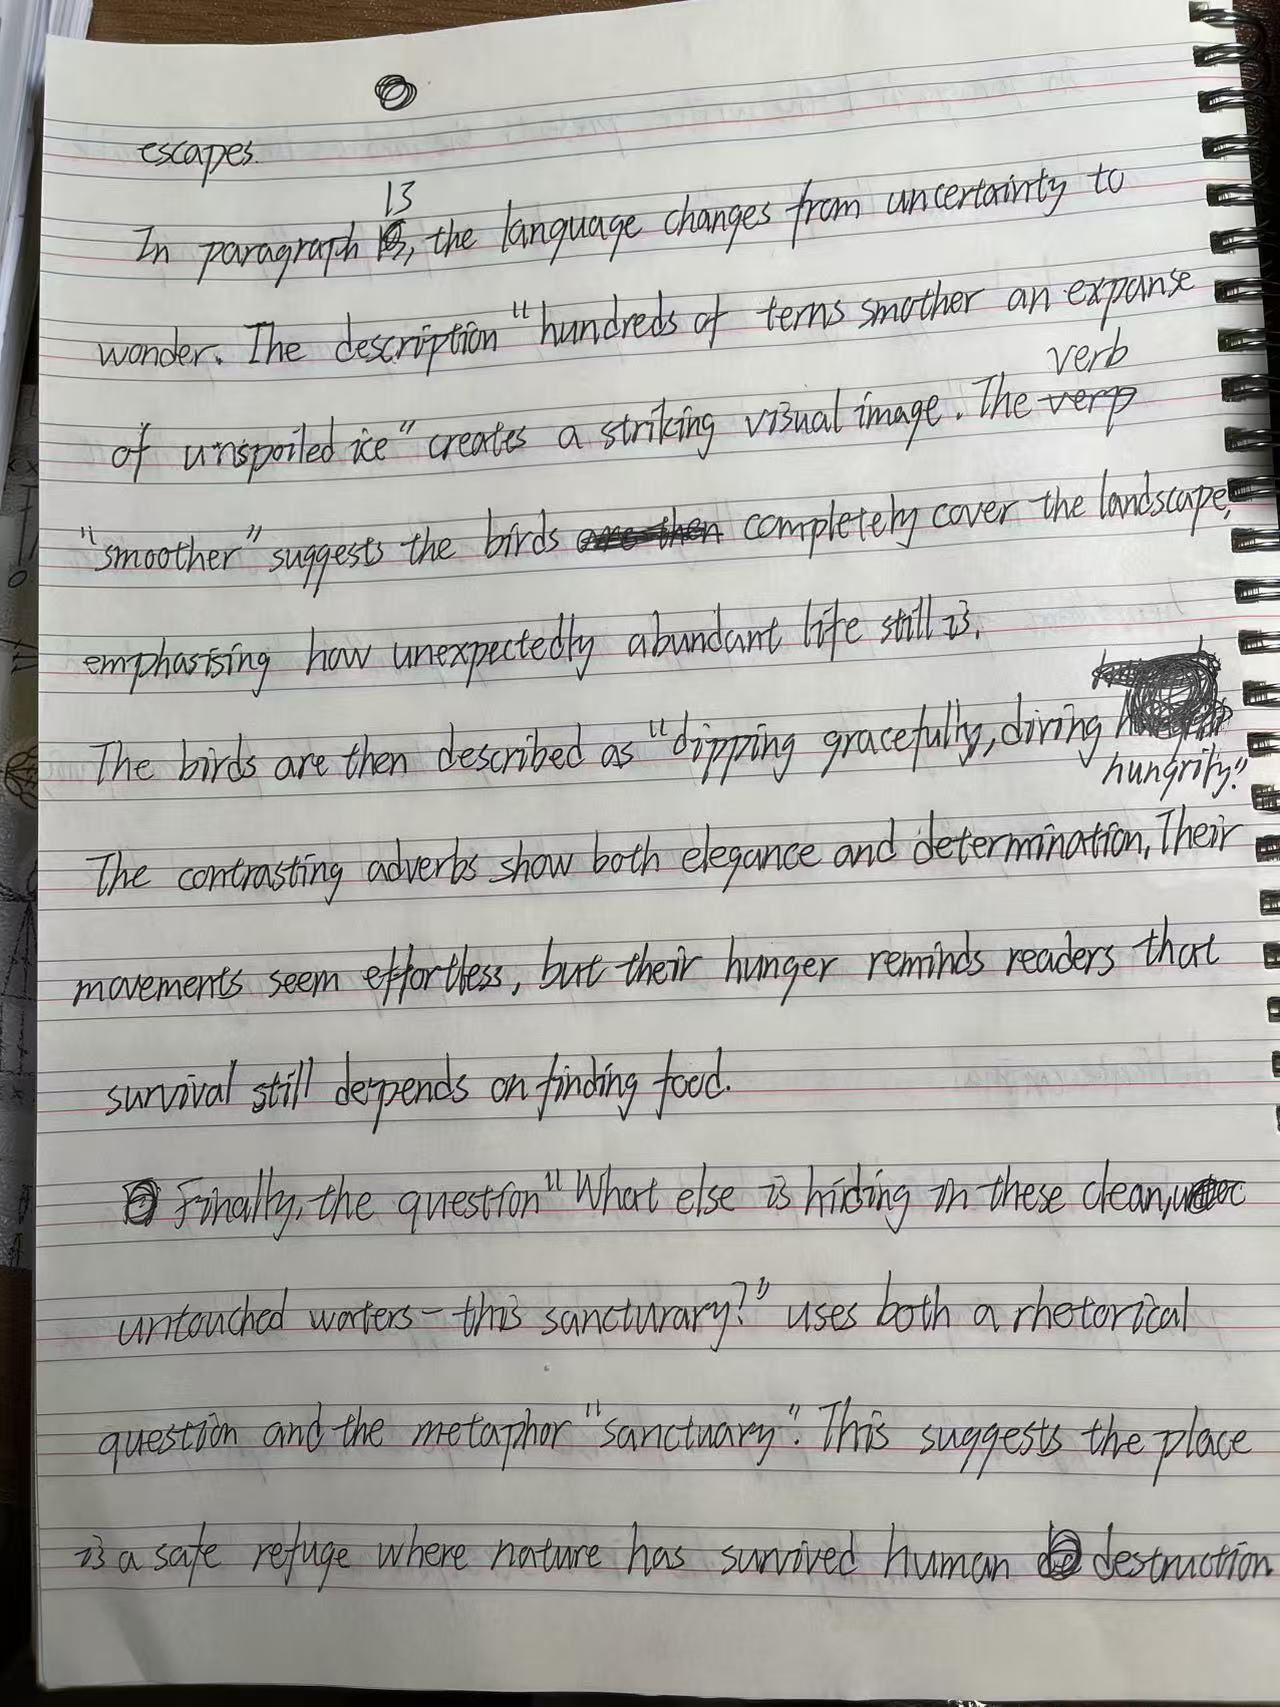 escapes.
13
In paragraph, the language changes from uncertainty to
wonder. The description "hundreds of terns smother an expanse
verb
of unspoiled ice" creates a striking visual image. The verp
"smoother" suggests the birds are then completely cover the landscape,
emphasising how unexpectedly abundant life still is.
The birds are then described as "dipping gracefully, diving
hungrily."
The contrasting adverbs show both elegance and determination, Their
movements seem effortless, but their hunger reminds readers that
survival still depends on finding food.
Finally, the question "What else is hiding in these clean,
untouched waters - this sancturary?" uses both a rhetorical
question and the metaphor "sanctuary". This suggests the place
is a safe refuge where nature has survived human destruction.